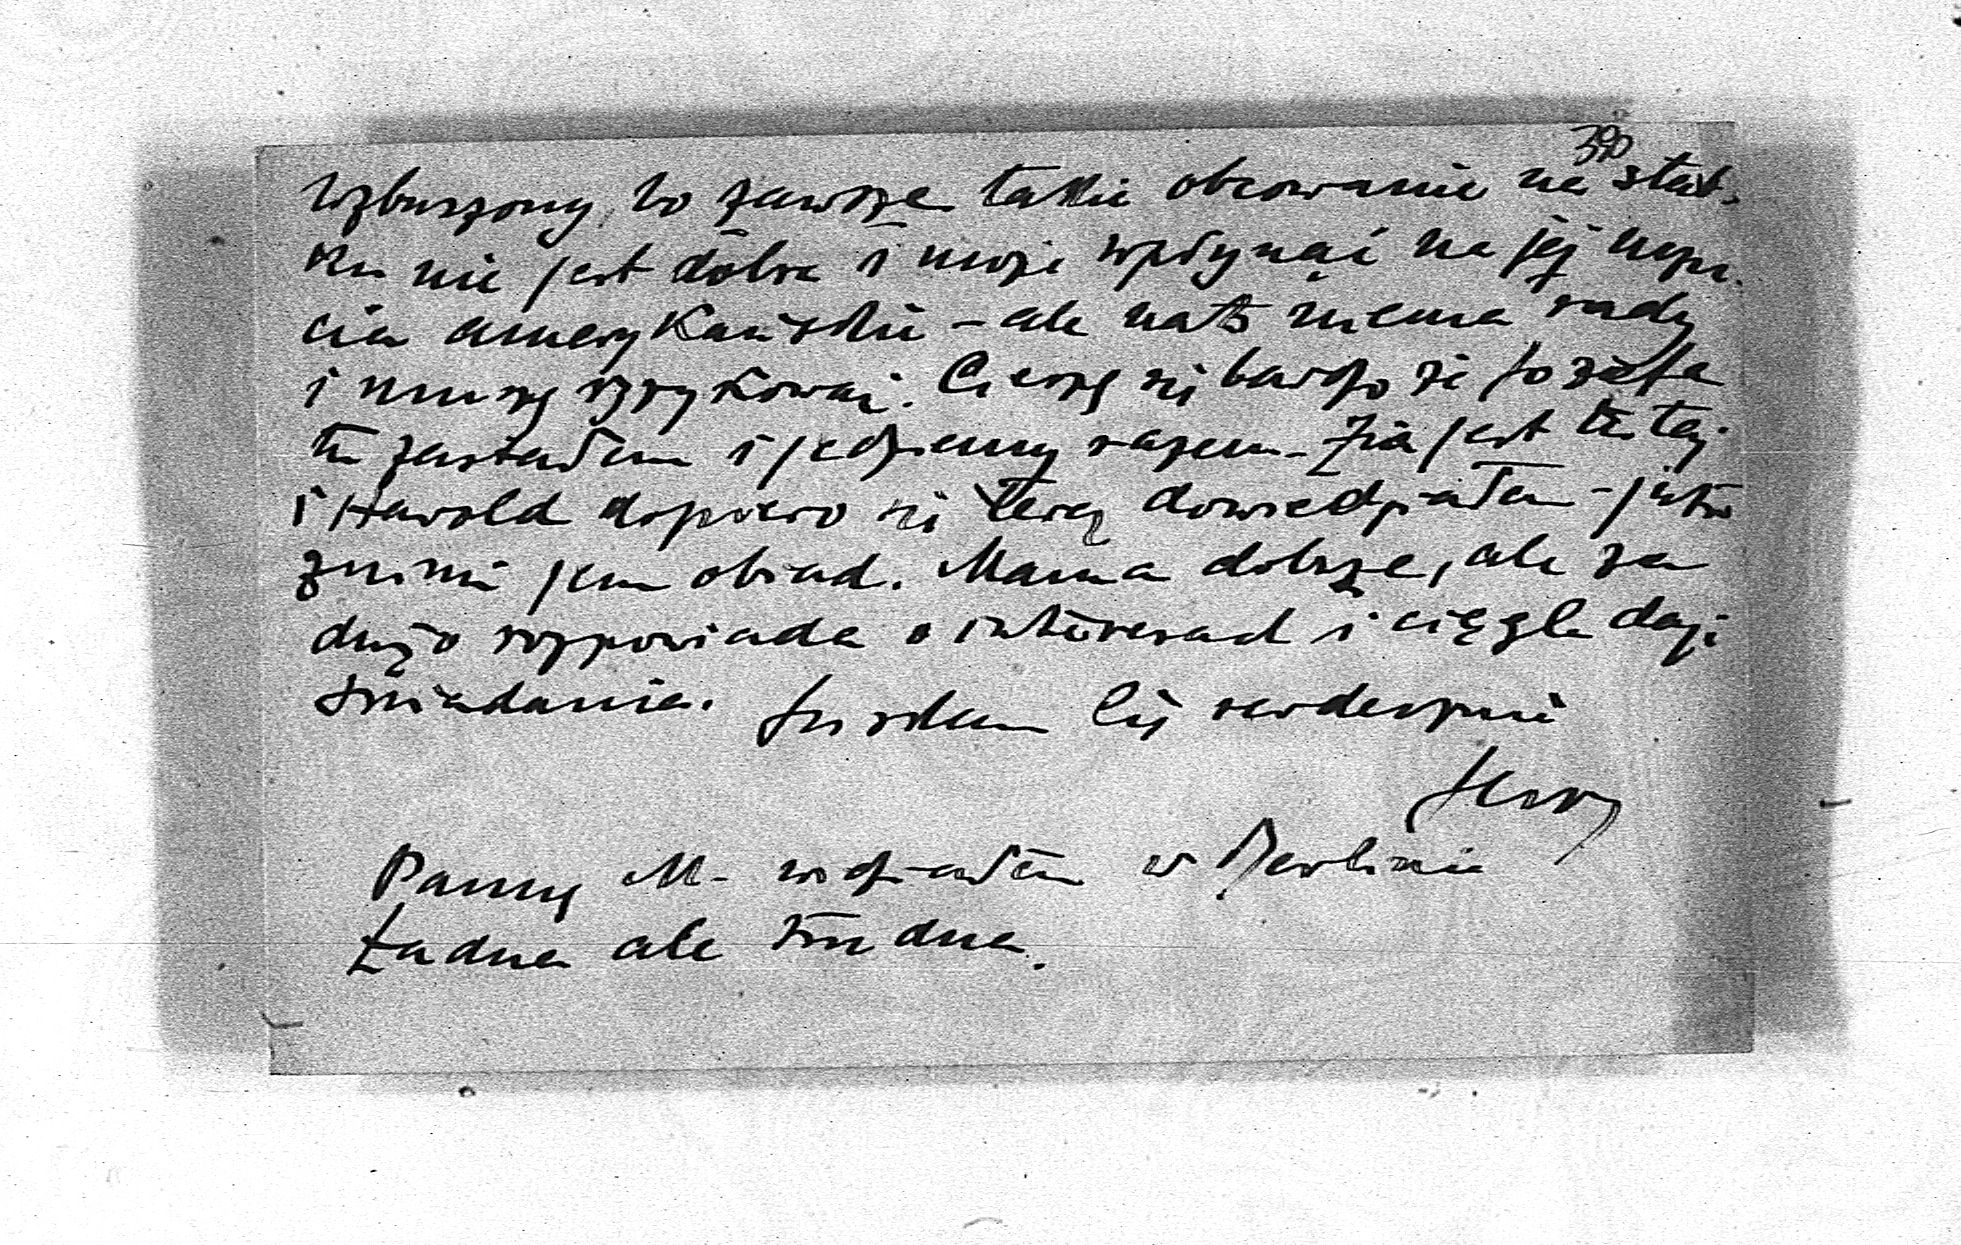 390
wzburzony, bo zawsze takie obcowanie na stat-
ku nie jest dobre i może wpłynąć na jej uczu-
cia amerykańskie – ale na to niema rady
i muszę ryzykować. Cieszę się bardzo że Józefa
tu zastałem i jedziemy razem. Zia jest tutaj
i Harold dopiero się teraz dowiedziałem – jutro
z nimi jem obiad. Mama dobrze, ale za
dużo rozpowiada o interesach i ciągle daje
śniadania. Ściskam Cię serdecznie
Panny M. widziałem w Berlinie
Ładna ale trudna.